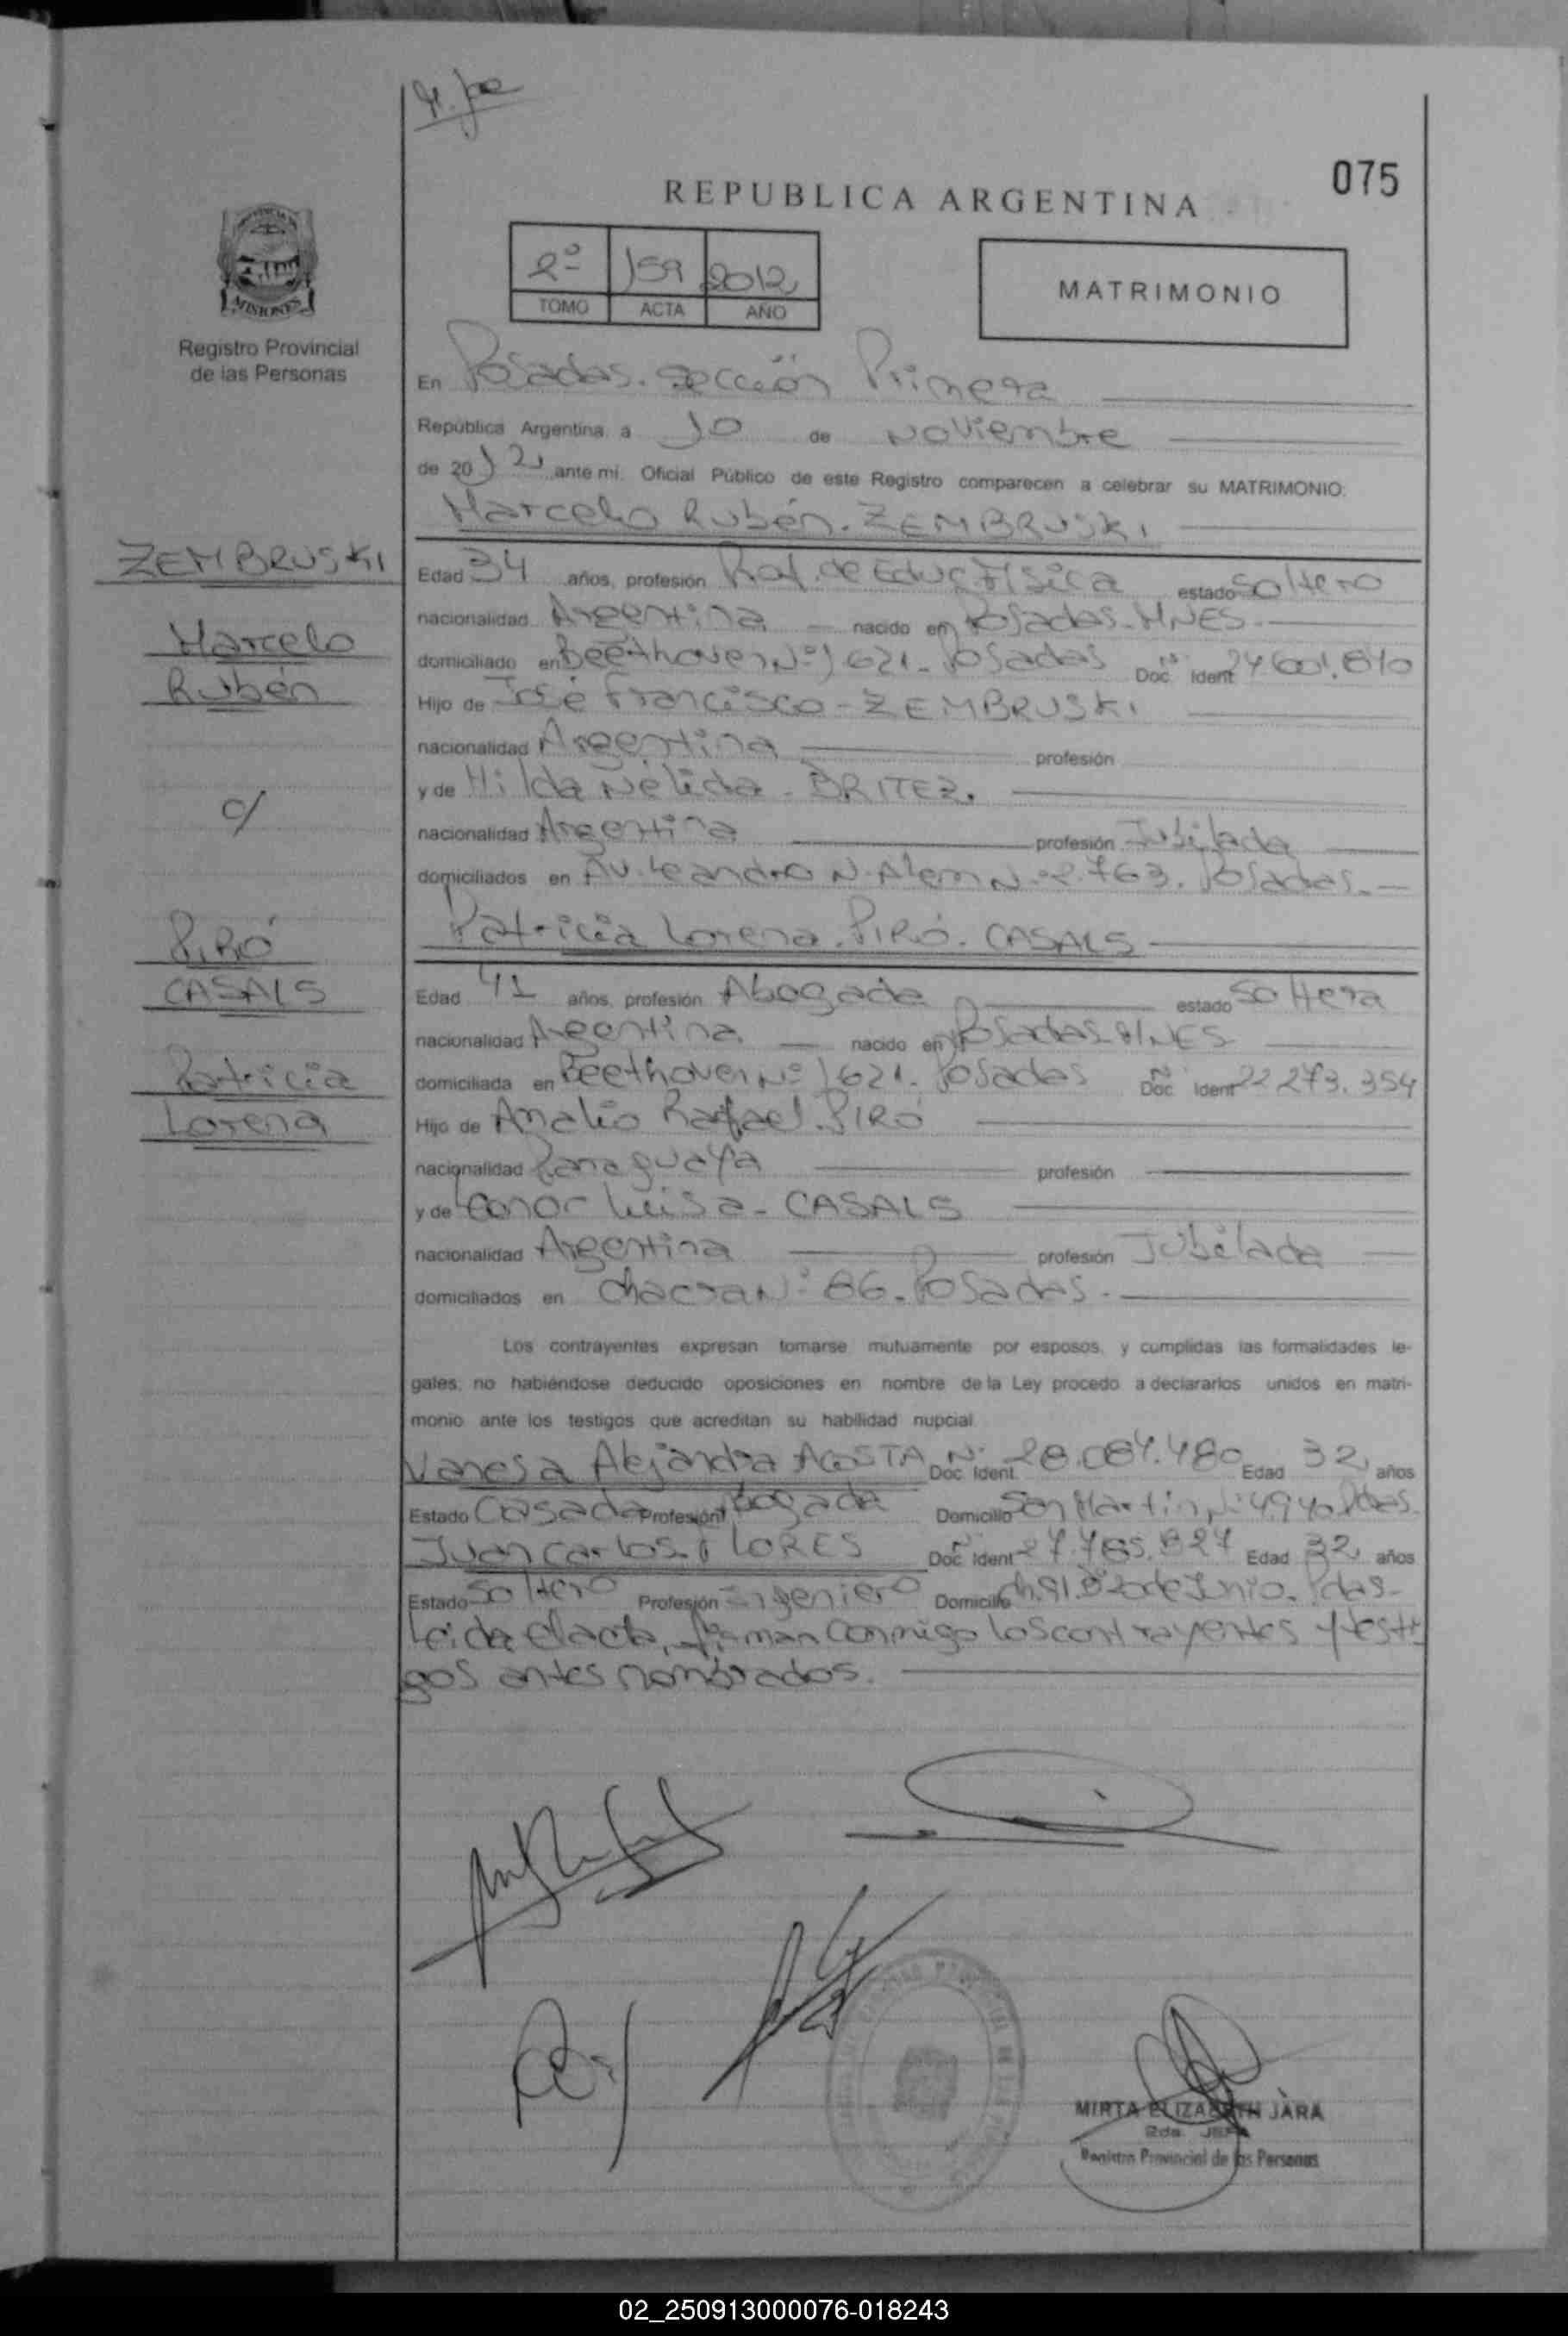 075
REPUBLICA ARGENTINA
2º 159 2012
TOMO ACTA AÑO
MATRIMONIO
MISIONES
Registro Provincial
de las Personas
En Posadas. Sección Primera
República Argentina a 10 de Noviembre
de 2012, ante mi, Oficial Público de este Registro comparecen a celebrar su MATRIMONIO:
Marcelo Rubén. ZEMBRUSKI
ZEMBRUSKI
Marcelo
Rubén
c/
PIRÓ
CASALS
Patricia
Lorena
Edad 34 años, profesión Prof. de Educ. Física estado Soltero
nacionalidad Argentina nacido en Posadas-MNES-
domiciliado en Beethoven Nº 1621- Posadas Nº Doc. Ident.
Hijo de José Francisco - ZEMBRUSKI
nacionalidad Argentina profesión
y de Hilda Nélida - BRITEZ.
nacionalidad Argentina profesión Jubilada
domiciliados en Av. Leandro N. Alem Nº 2.763. Posadas.-
Patricia Lorena. PIRÓ. CASALS
Edad 41 años, profesión Abogada estado Soltera
nacionalidad Argentina nacido en Posadas-MNES
domiciliada en Beethoven Nº 1621. Posadas Nº Doc. Ident 22273.354
Hijo de Amalio Rafael. PIRÓ
nacionalidad Paraguaya profesión
y de Leonor Luisa - CASALS
nacionalidad Argentina profesión Jubilada
domiciliados en Chacra Nº 86. Posadas.
Los contrayentes expresan tomarse mutuamente por esposos, y cumplidas las formalidades le-
gales, no habiéndose deducido oposiciones en nombre de la Ley procedo a declararlos unidos en matri-
monio ante los testigos que acreditan su habilidad nupcial.
Vanesa Alejandra ACOSTA Nº Doc. Ident. 28.084.480 Edad 32 años
Estado Casada Profesión Abogada Domicilio San Martin Nº 4940 Pdas.
Juan Carlos FLORES Nº Doc. Ident 27.785.827 Edad 32 años
Estado Soltero Profesión Ingeniero Domicilio Ch. 91. Bº 20 de Junio. Pdas-
Leida el acta, firman conmigo los contrayentes y testi
gos antes nombrados.
MIRTA ELIZABETH JARA
2da. JEFA
Registro Provincial de las Personas
02_250913000076-018243